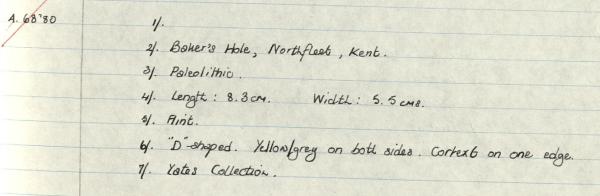 A. 68'80 1/.
2/. Baker's Hole, Northfleet, Kent.
3/. Paleolithic.
4/. Length: 8.3 cm. Width: 5.5 cms.
5/. Flint.
6/. "D"-shaped. Yellow/grey on both sides. Cortext on one edge.
7/. Yates Collection.